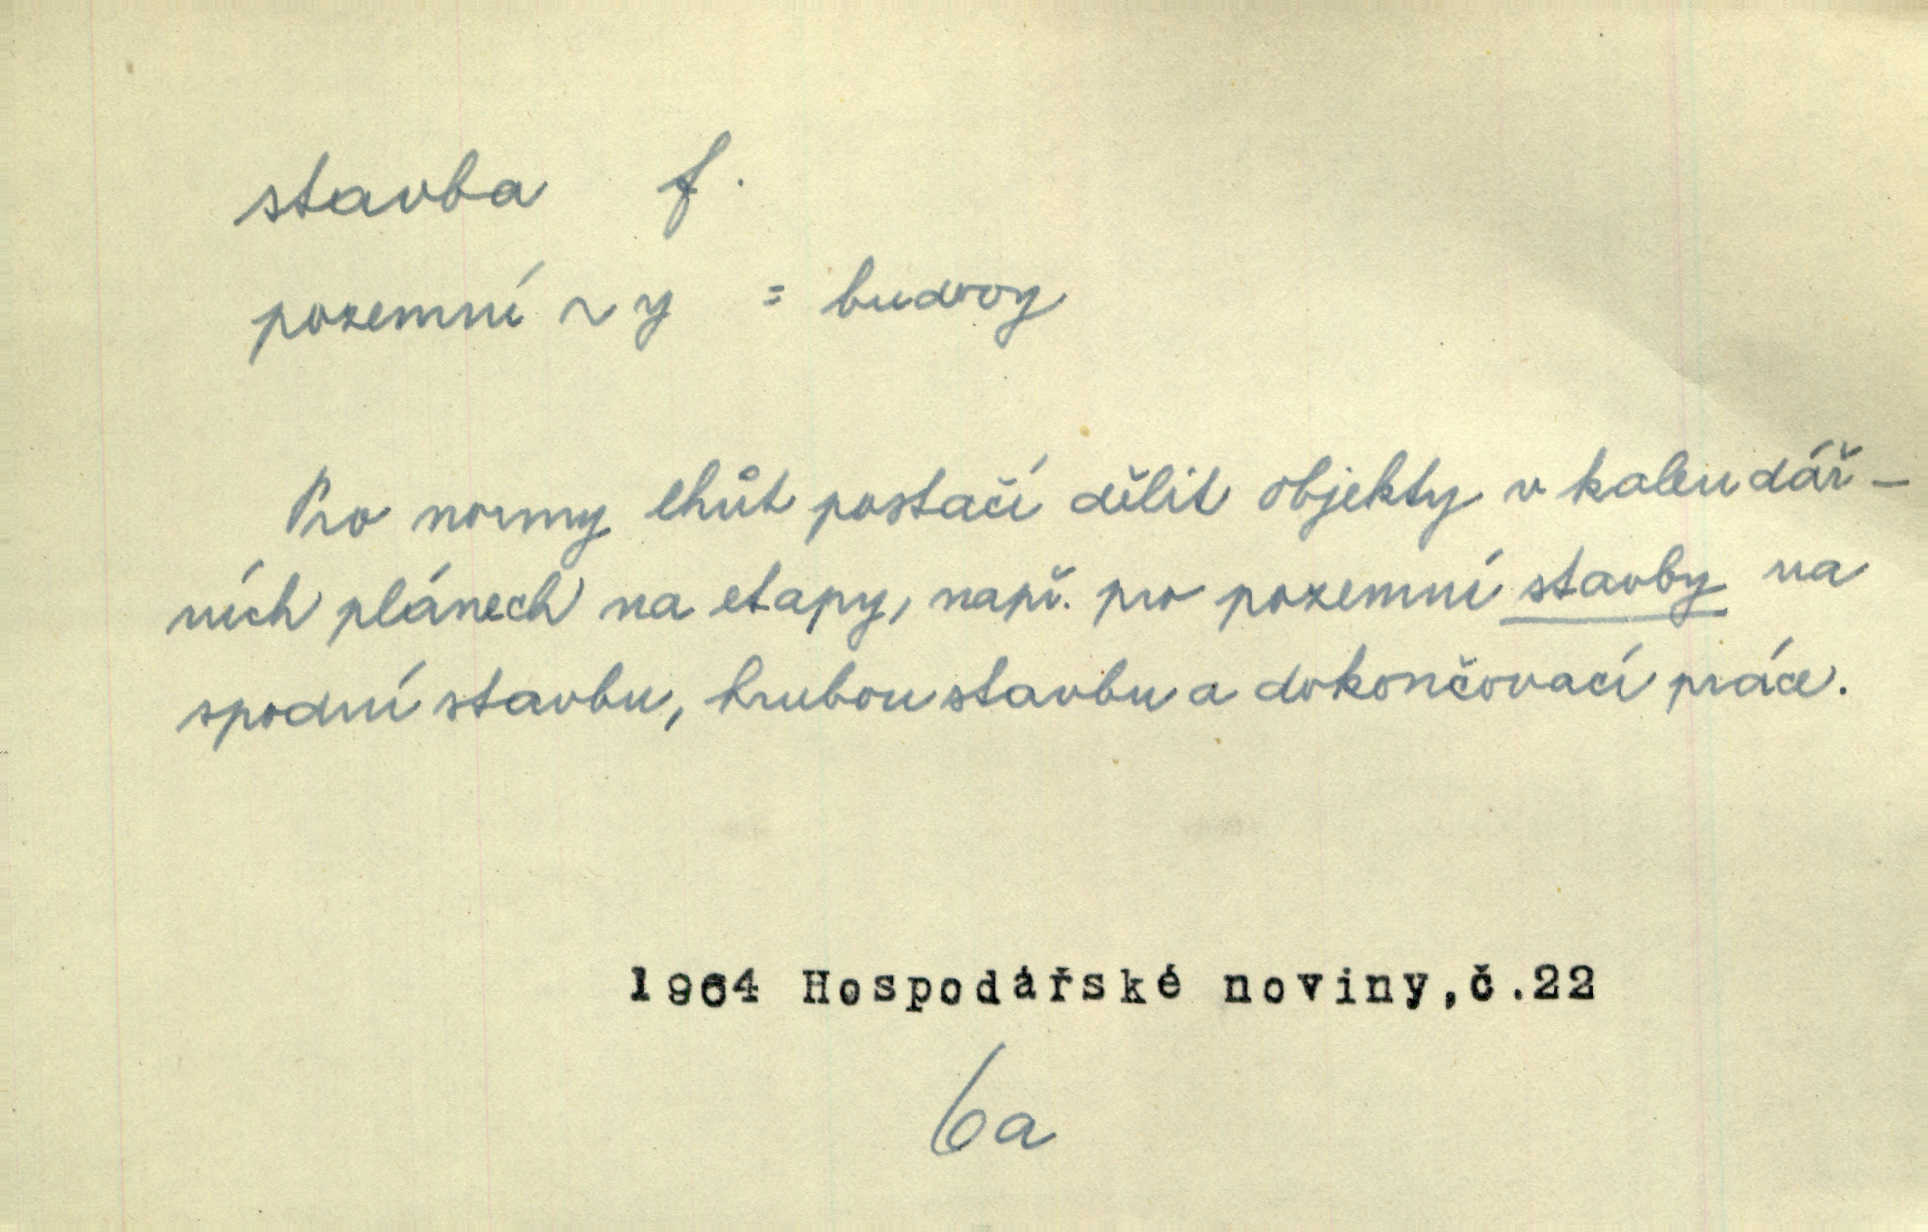 stavba f.
pozemní ~y = budovy
Pro normy lhůt postačí dělit objekty v kalendář-
ních plánech na etapy, např. pro pozemní stavby na
spodní stavbu, hrubou stavbu a dokončovací práce.
1964 Hospodářské noviny,č.22
6a